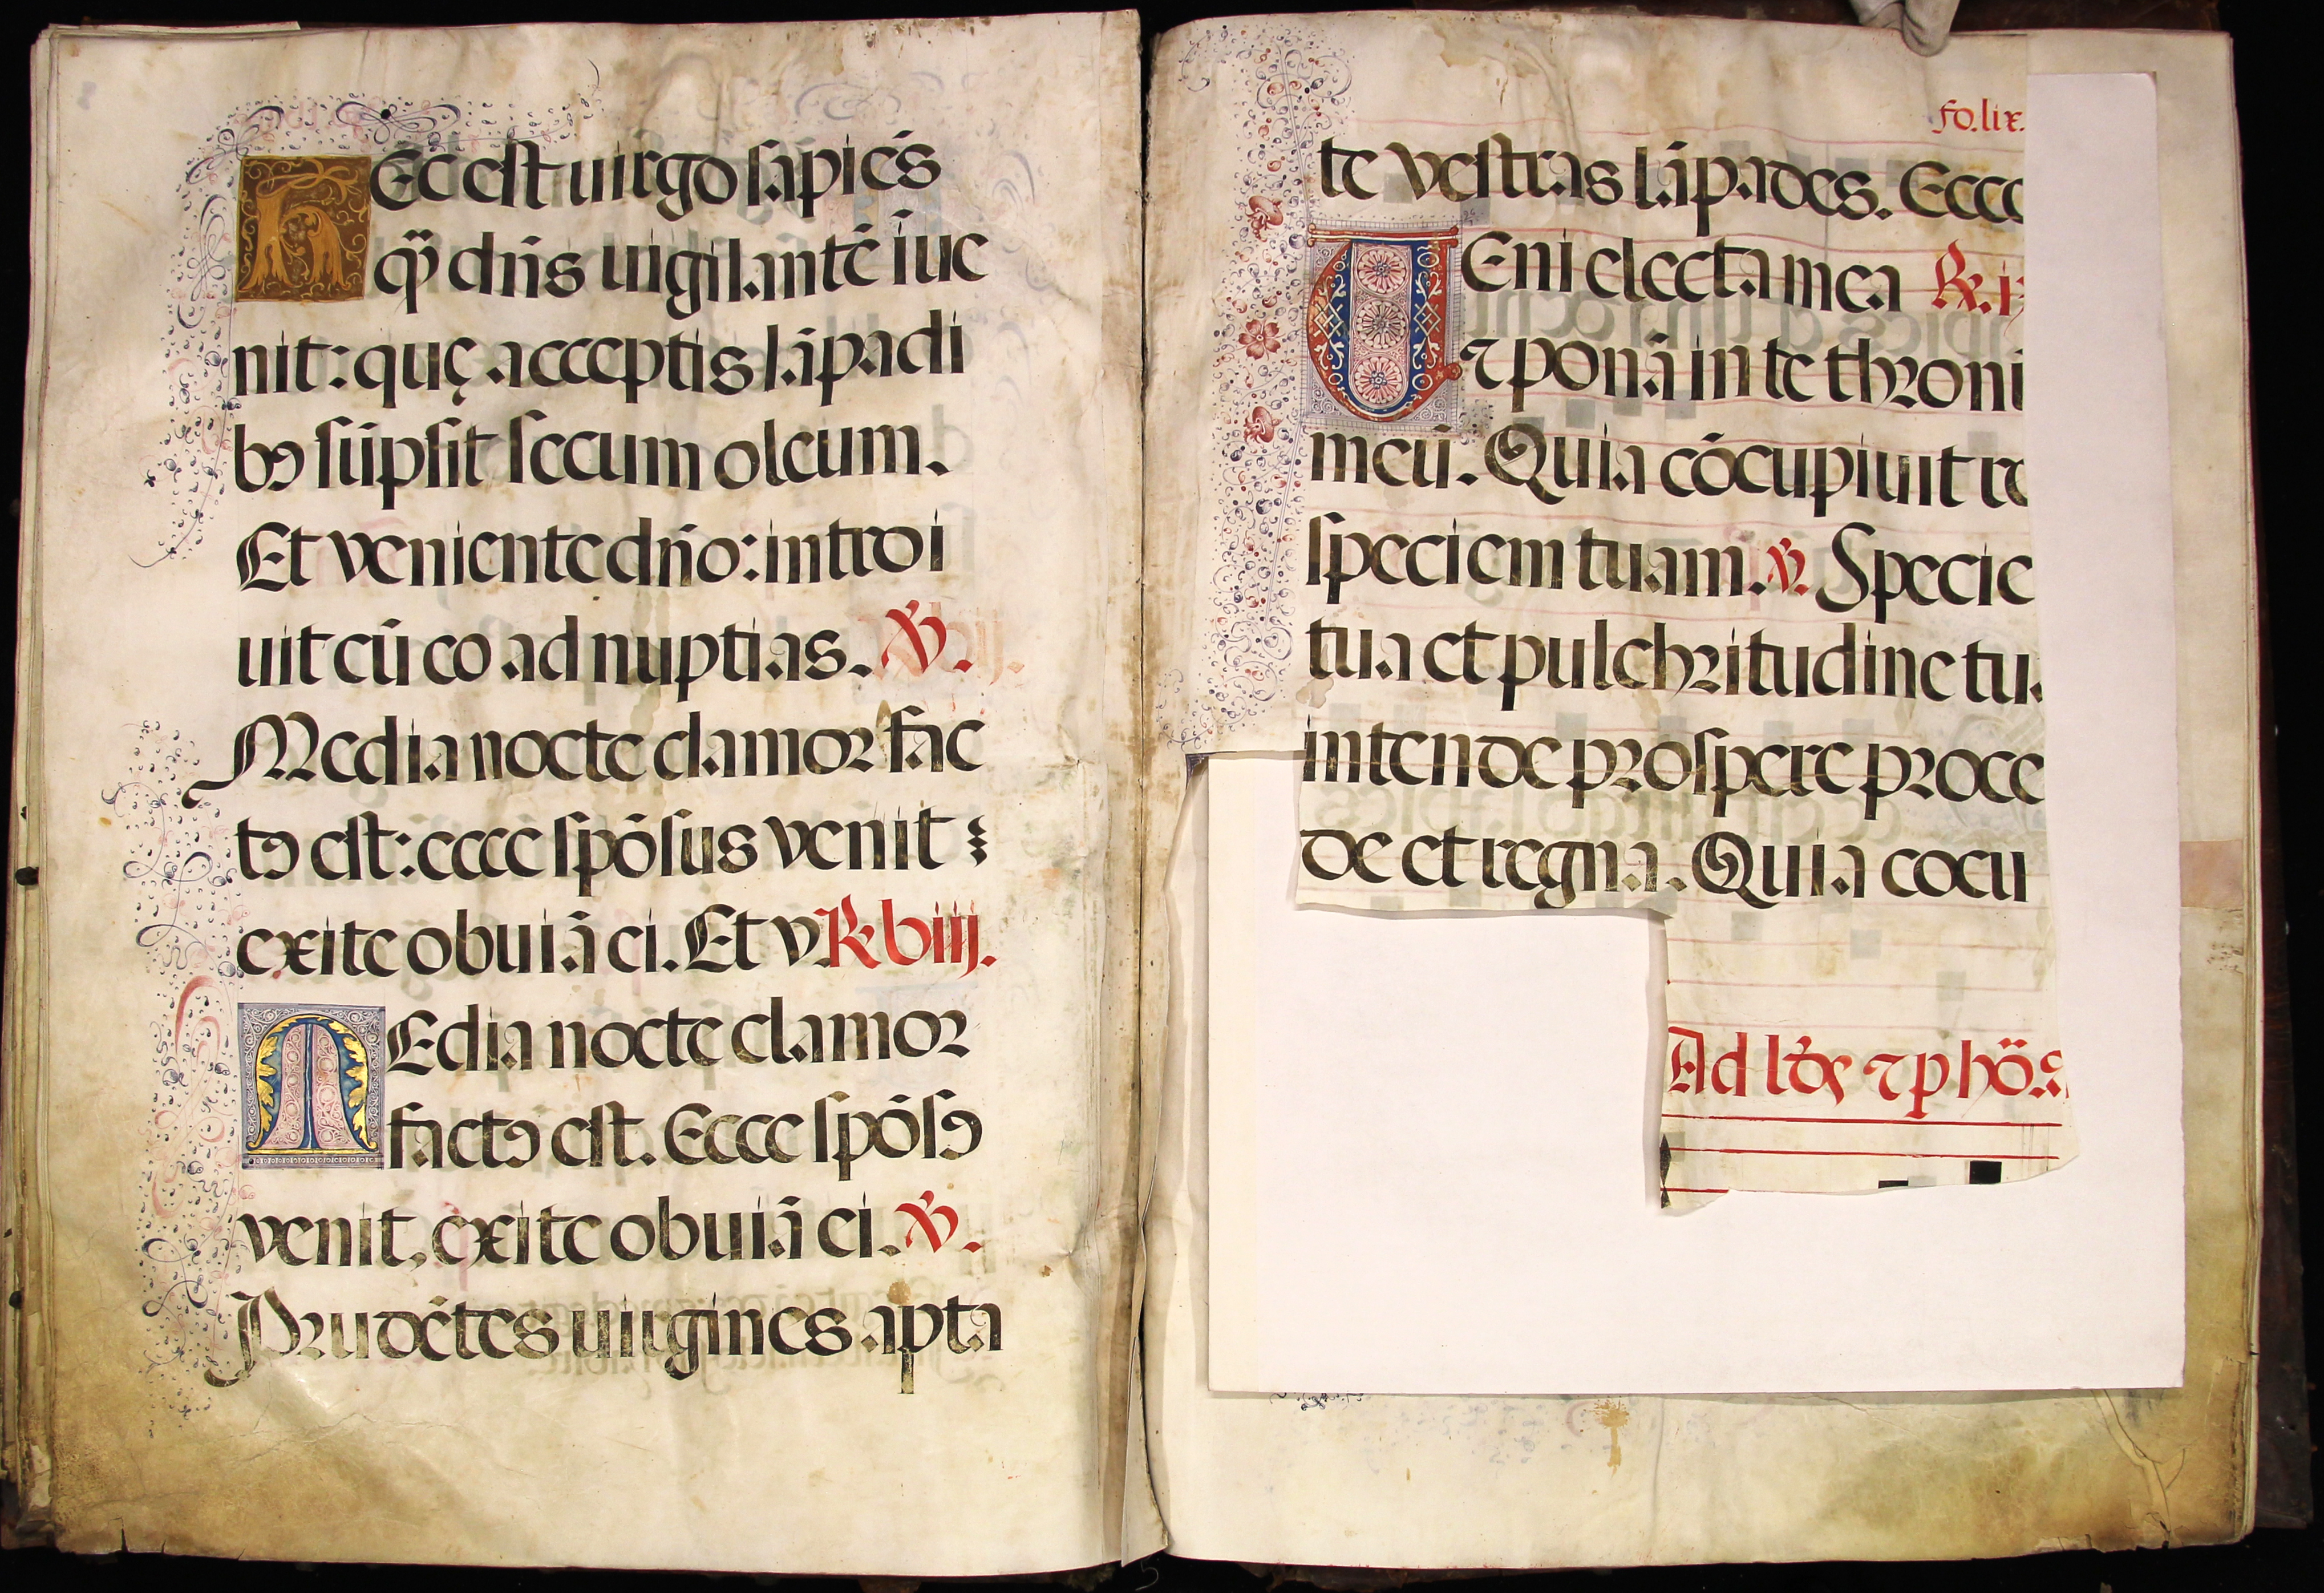 HEc est uirgo sapiẽs
qᷓ dñs uigilantẽ iue
nit: quę acceptis lãpadi
bꝰ sũpsit secum oleum.
Et veniente dño: introi
uit cũ eo ad nuptias. ℣.
Media nocte clamoꝛ fac
tꝰ est: ecce spõsus venit
exite obuiã ei. Et v. ℟ viij.
MEdia nocte clamoꝛ
factꝰ est. Ecce spõsꝰ
venit, exite obuiã ei. ℣.
Pꝛudẽtes uirgines apta
fo. lix.
te vestras lãpades. Ecce
UEni electa mea ℟. i
⁊ ponã in te thꝛoni
meũ. Quia cõcupiuit re
speciem tuam. ℣. Specie
tua et pulchꝛitudine tu
intende pꝛospere pꝛoce
de et regna. Quia cocu
Ad lḋs ⁊ p hõ.